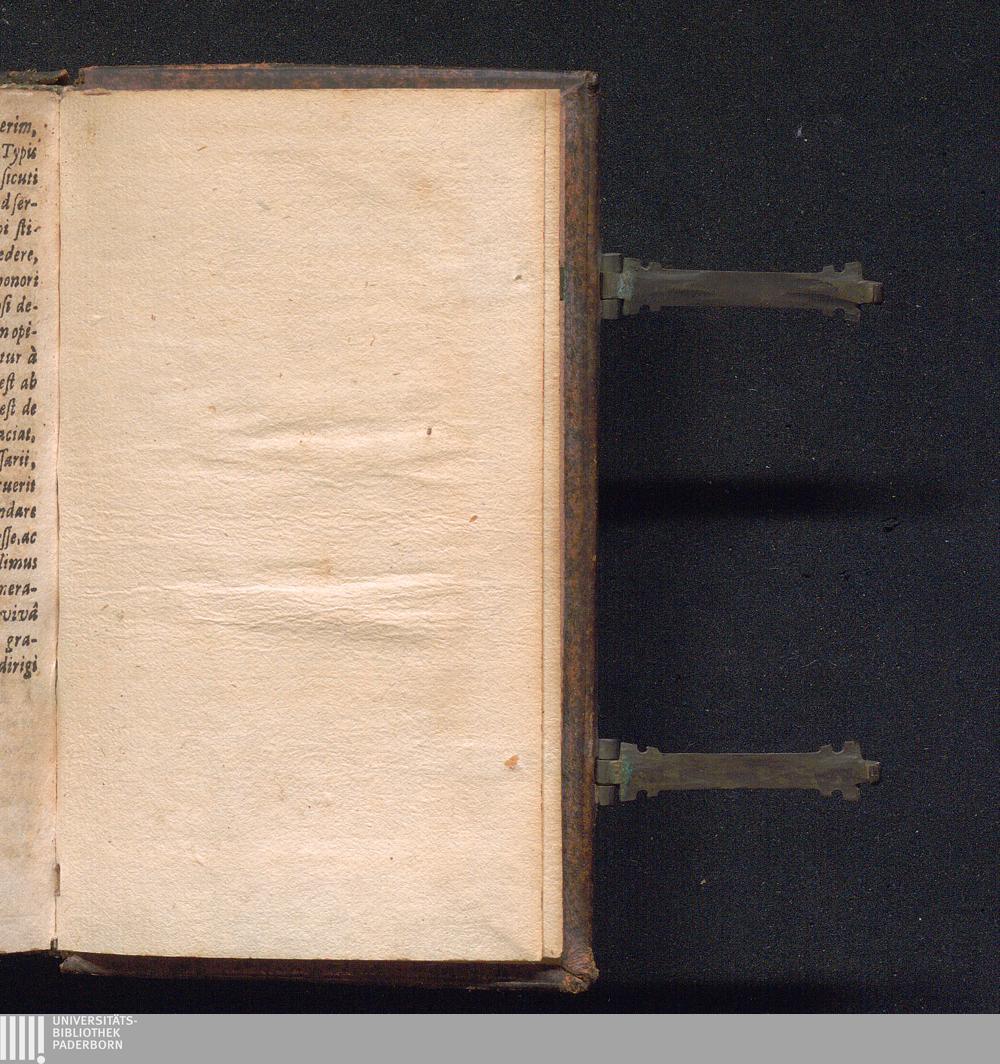 erim,
Typis
ſicuti
d ſer-
pi ſti-
edere,
honori
oſi de-
n opi-
tur à
eſt ab
eſt de
aciat,
ſſarii,
uerit
ndare
eſſe, ac
dimus
nera-
vivâ
gra-
dirigi
UNIVERSITÄTS-
BIBLIOTHEK
PADERBORN